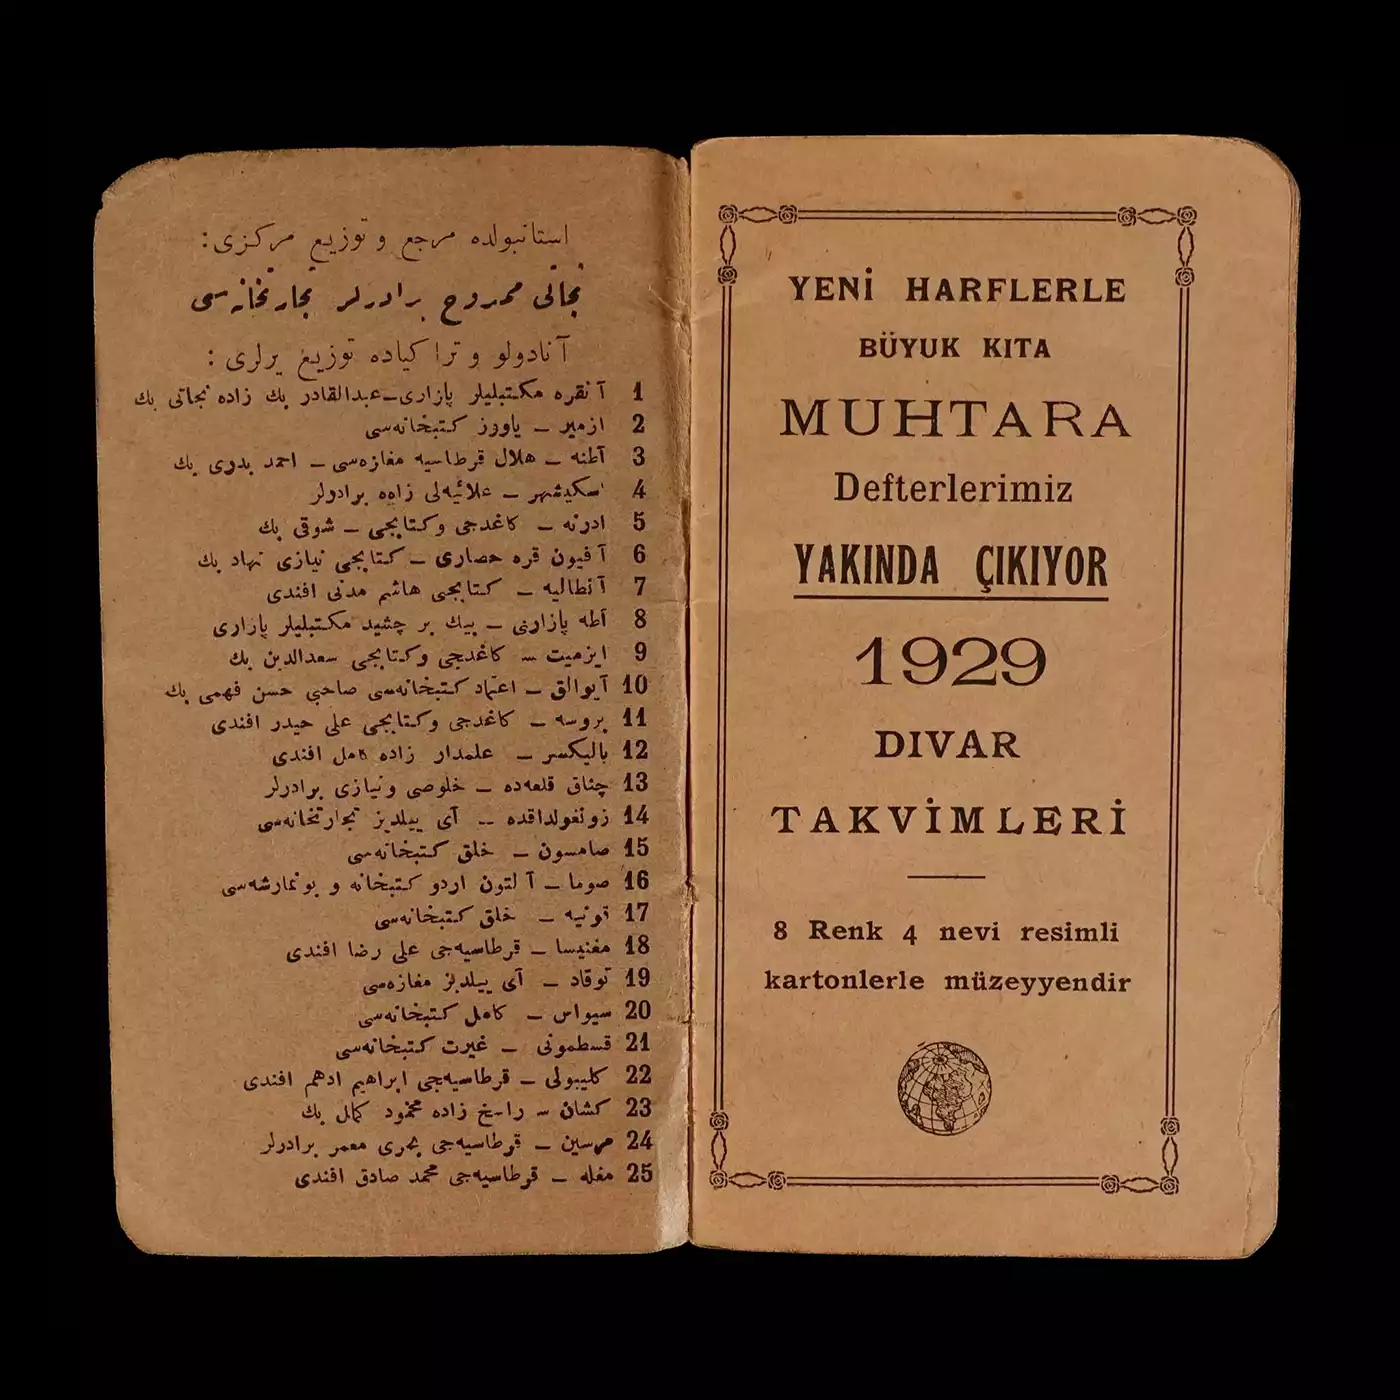 استانبولده مرجع و توزيع مركزى :
نجاتى ممدوح برادرلر تجارتخانه‌سى
آنادولو و تراكياده توزيع يرلرى :
1 آنقره مكتبليلر پازارى – عبدالقادر بك زاده نجاتى بك
2 ازمير – ياوز كتبخانه‌سى
3 آطنه – هلال قرطاسيه مغازه‌سى – احمد بدرى بك
4 اسكيشهر – علائيه‌لى زاده برادرلر
5 ادرنه – كاغدجى وكتابجى – شوقى بك
6 آفيون قره حصارى – كتابجى نيازى نهاد بك
7 آنطاليه – كتابجى هاشم مدنى افندى
8 آطه پازارى – بيك بر چشيد مكتبليلر پازارى
9 ايزميت – كاغدجى وكتابجى سعدالدين بك
10 آيوالق – اعتماد كتبخانه‌سى صاحبى حسن فهمى بك
11 بروسه – كاغدجى وكتابجى على حيدر افندى
12 باليكسر – علمدار زاده كامل افندى
13 چناق قلعه‌ده – خلوصى ونيازى برادرلر
14 زونغولداقده – آى ييلديز تجارتخانه‌سى
15 صامسون – خلق كتبخانه‌سى
16 صوما – آلتون اردو كتبخانه و بونمارشه‌سى
17 قونيه – خلق كتبخانه‌سى
18 مغنيسا – قرطاسيه‌جى على رضا افندى
19 توقاد – آى ييلديز مغازه‌سى
20 سيواس – كامل كتبخانه‌سى
21 قسطمونى – غيرت كتبخانه‌سى
22 كليبولى – قرطاسيه‌جى ابراهيم ادهم افندى
23 كشان – راسخ زاده محمود كمال بك
24 مرسين – قرطاسيه‌جى بحرى معمر برادرلر
25 مغله – قرطاسيه‌جى محمد صادق افندى
YENİ HARFLERLE
BÜYUK KITA
MUHTARA
Defterlerimiz
YAKINDA ÇIKIYOR
1929
DIVAR
TAKVİMLERİ
8 Renk 4 nevi resimli
kartonlerle müzeyyendir